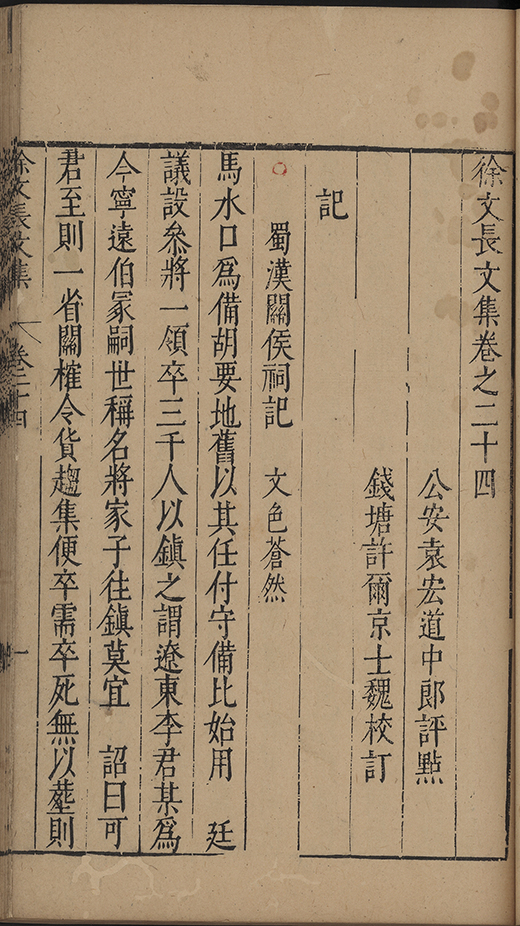 徐文長文集卷之二十四
公安袁宏道中郎評點
錢塘許爾京士魏校訂
記
蜀漢關侯祠記 文色蒼然
馬水口爲備胡要地舊以其任付守備比始用 廷
議設叅將一領卒三千人以鎮之謂遼東李君某爲
今寧遠伯冢嗣世稱名將家子往鎮莫宜 詔曰可
君至則一省關榷令貨趨集便卒需卒死無以塟則
徐文長文集 卷二十四 一